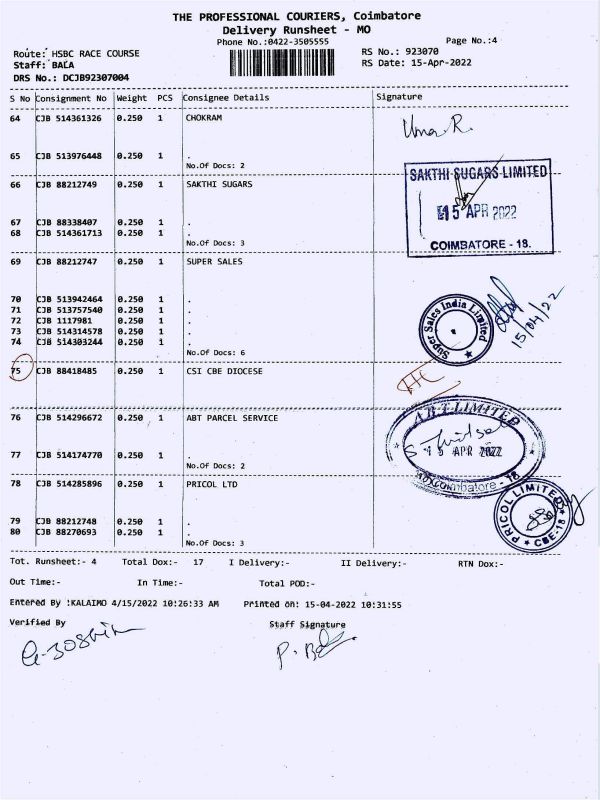 THE PROFESSIONAL COURIERS, Coimbatore
Delivery Runsheet - MO
Phone No.:0422-3505555
Page No.:4
Route: HSBC RACE COURSE
RS No.: 923070
Staff: BALA
RS Date: 15-Apr-2022
DRS No.: DCJB92307004
S No Consignment No Weight PCS Consignee Details Signature
64 CJB 514361326 0.250 1 CHOKRAM
Uma R.
65 CJB 513976448 0.250 1 .
No.Of Docs: 2
66 CJB 88212749 0.250 1 SAKTHI SUGARS
SAKTHI SUGARS LIMITED
15 APR 2022
COIMBATORE - 18.
67 CJB 88338407 0.250 1 .
68 CJB 514361713 0.250 1 .
No.Of Docs: 3
69 CJB 88212747 0.250 1 SUPER SALES
70 CJB 513942464 0.250 1 .
71 CJB 513757540 0.250 1 .
72 CJB 1117981 0.250 1 .
73 CJB 514314578 0.250 1 .
74 CJB 514303244 0.250 1 .
No.Of Docs: 6
Super Sales India Limited
15/04/22
75 CJB 88418485 0.250 1 CSI CBE DIOCESE
76 CJB 514296672 0.250 1 ABT PARCEL SERVICE
ABT LIMITED
15 APR 2022
Coimbatore - 18
77 CJB 514174770 0.250 1 .
No.Of Docs: 2
78 CJB 514285896 0.250 1 PRICOL LTD
PRICOL LIMITED
CBE-18
79 CJB 88212748 0.250 1 .
80 CJB 88270693 0.250 1 .
No.Of Docs: 3
Tot. Runsheet:- 4 Total Dox:- 17 I Delivery:- II Delivery:- RTN Dox:-
Out Time:- In Time:- Total POD:-
Entered By :KALAIMO 4/15/2022 10:26:33 AM Printed on: 15-04-2022 10:31:55
Verified By Staff Signature